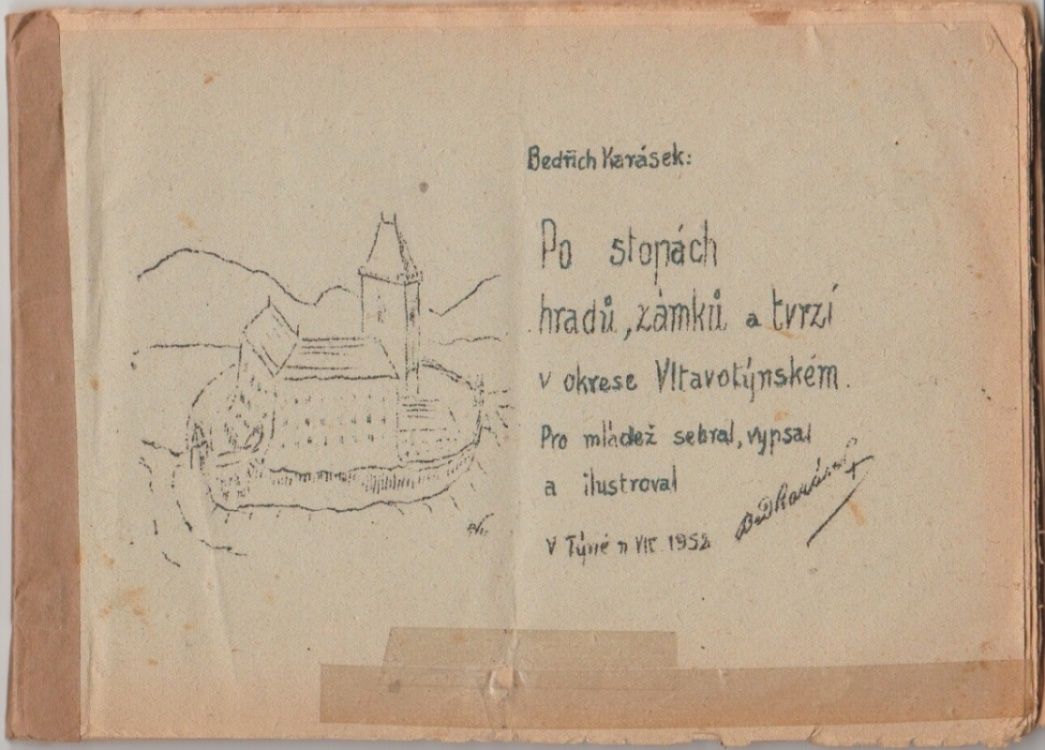 Bedřich Karásek:
Po stopách
hradů, zámků a tvrzí
v okrese Vltavotýnském.
Pro mládež sebral, vypsal
a ilustroval
V Týně n Vlt. 1952
BedKarásek